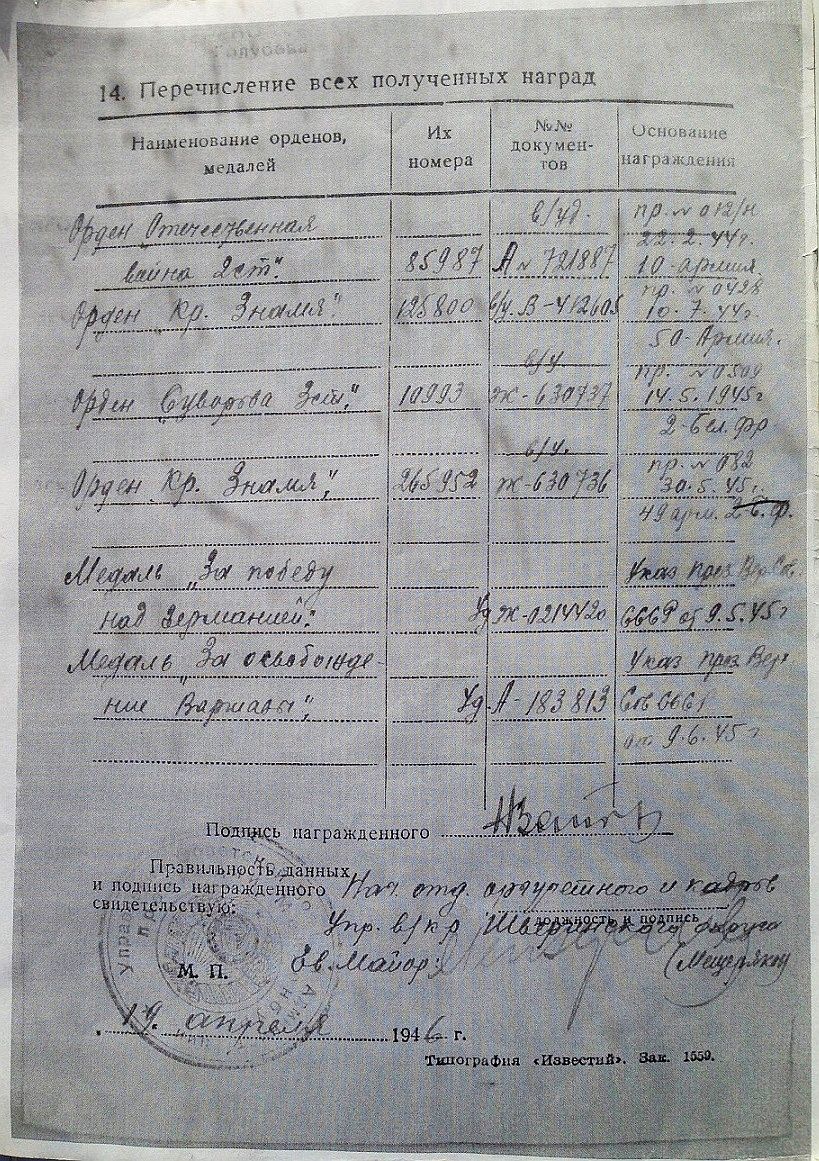 14. Перечисление всех полученных наград
Наименование орденов, медалей
Их номера
№№ документов
Основание награждения
Орден „Отечественная в/уд. пр. № 012/н
22.2.44г.
война 2ст." 85987 А № 721887 10-армия.
Орден „Кр. Знамя". 125800 в/у. В-412605 пр. № 0428
10.7.44г.
50-Армия.
в/у. пр. № 0509
Орден „Суворова 3ст." 10993 Ж-630737 14.5.1945г
2-Бел.фр.
в/у. пр. № 082
Орден „Кр. Знамя", 265952 Ж-630736 30.5.45г.
49 арм. 2 б.ф.
Медаль „За победу Указ През Вер Сов
над Германией." Уд Ж-0214420 СССР от 9.5.45г
Медаль „За освобожде- Указ През Вер
ние Варшавы", Уд. А-183813 Сов СССР
от 9.6.45г
Подпись награжденного
Правильность данных
и подпись награжденного Нач. отд. орд.учетного и кадров
свидетельствую:
должность и подпись
Упр. в/кр округа
М. П. Гв. Майор: (Мещеряков)
„19. апреля 1946 г.
Типография «Известий». Зак. 1559.